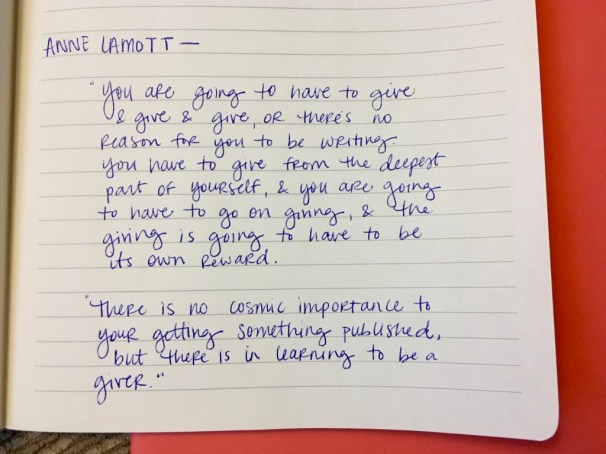 ANNE LAMOTT —
"You are going to have to give
& give & give, or there's no
reason for you to be writing.
You have to give from the deepest
part of yourself, & you are going
to have to go on giving, & the
giving is going to have to be
its own reward.
"There is no cosmic importance to
your getting something published,
but there is in learning to be a
giver."